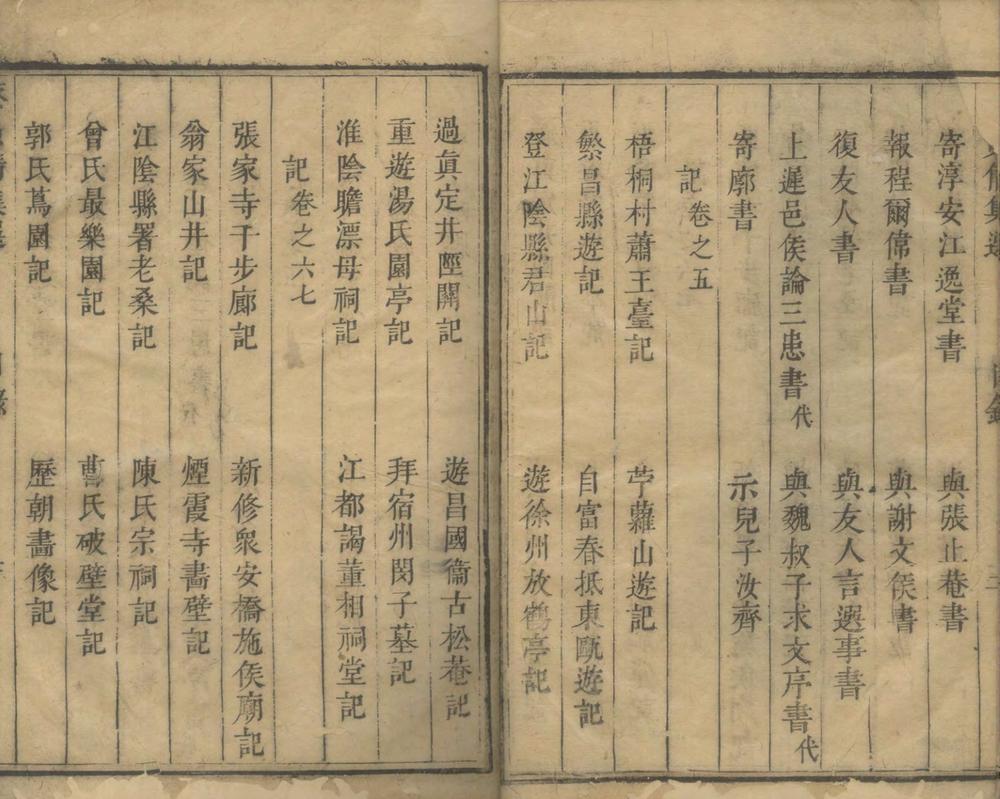 寄淳安江逸堂書　與張止菴書
報程爾俙書　與謝文侯書
復友人書　與友人言選事書
上遲邑侯論三患書代　與魏叔子求文序書代
寄廓書　示兒子汝齊
記卷之五
梧桐村蕭王臺記　苧蘿山遊記
繁昌縣遊記　自富春抵東甌遊記
登江陰縣君山記　遊徐州放鶴亭記
過真定井陘關記　遊昌國衞古松菴記
重遊湯氏園亭記　拜宿州閔子墓記
淮陰瞻漂母祠記　江都謁董相祠堂記
記卷之六七
張家寺千步廊記　新修衆安橋施侯廟記
翁家山井記　煙霞寺畵壁記
江陰縣署老桑記　陳氏宗祠記
曾氏最樂園記　曹氏破壁堂記
郭氏蔿園記　歷朝畵像記